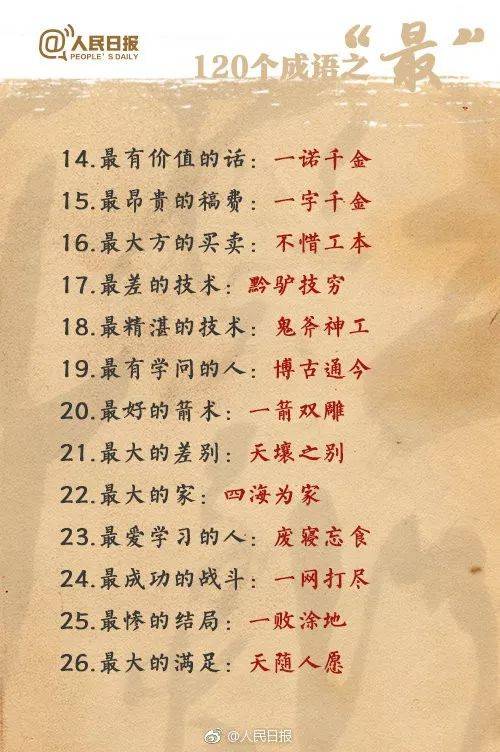 @人民日报
PEOPLE'S DAILY
120个成语之“最”
14.最有价值的话：一诺千金
15.最昂贵的稿费：一字千金
16.最大方的买卖：不惜工本
17.最差的技术：黔驴技穷
18.最精湛的技术：鬼斧神工
19.最有学问的人：博古通今
20.最好的箭术：一箭双雕
21.最大的差别：天壤之别
22.最大的家：四海为家
23.最爱学习的人：废寝忘食
24.最成功的战斗：一网打尽
25.最惨的结局：一败涂地
26.最大的满足：天随人愿
@人民日报